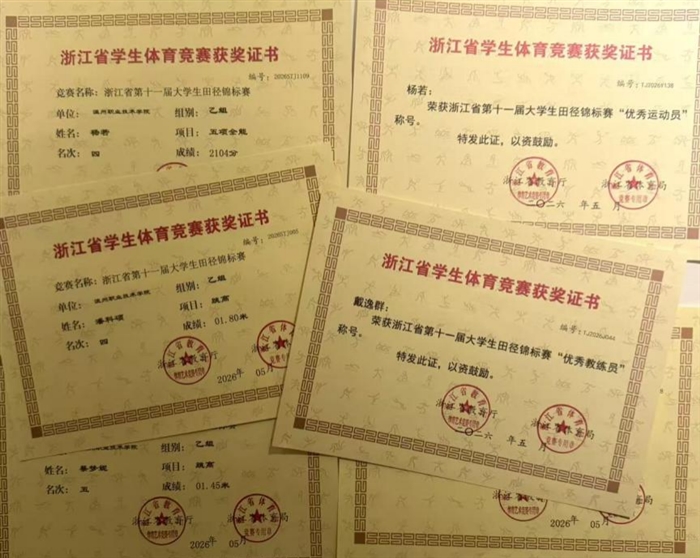 浙江省学生体育竞赛获奖证书
竞赛名称：浙江省第十一届大学生田径锦标赛
单位：温州职业技术学院 组别：乙组
姓名：杨若 项目：五项全能
名次：四 成绩：2104分
浙江省学生体育竞赛获奖证书
杨若：
荣获浙江省第十一届大学生田径锦标赛“优秀运动员”
称号。
特发此证，以资鼓励。
二〇二六 年 五 月
浙江省学生体育竞赛获奖证书
竞赛名称：浙江省第十一届大学生田径锦标赛
单位：温州职业技术学院 组别：乙组
姓名：潘科颂 项目：跳高
名次：四 成绩：01.80米
2026年 05月
浙江省学生体育竞赛获奖证书
戴逸群：
荣获浙江省第十一届大学生田径锦标赛“优秀教练员”
称号。
特发此证，以资鼓励。
二〇二六 年 五 月
组别：乙组
姓名： 项目：跳高
名次：五 成绩：01.45米
2026年 05月